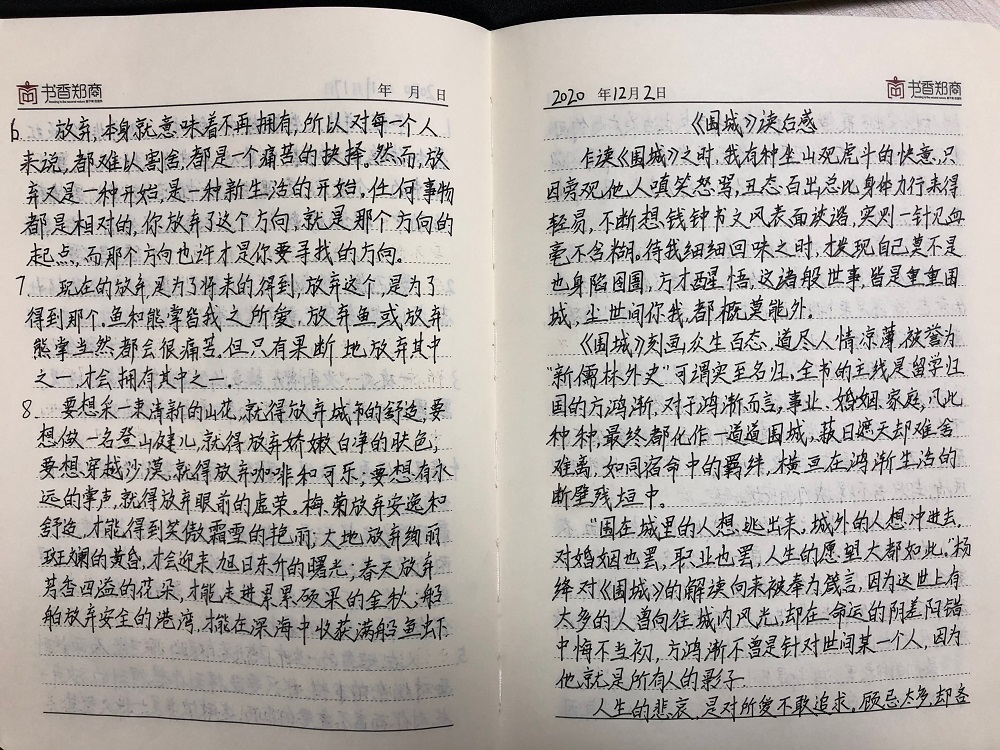 书香郑商
年 月 日
6. 放弃,本身就意味着不再拥有,所以对每一个人
来说,都难以割舍,都是一个痛苦的抉择。然而,放
弃又是一种开始,是一种新生活的开始。任何事物
都是相对的,你放弃了这个方向,就是那个方向的
起点,而那个方向也许才是你要寻找的方向。
7. 现在的放弃是为了将来的得到,放弃这个,是为了
得到那个。鱼和熊掌皆我之所爱,放弃鱼或放弃
熊掌当然都会很痛苦。但只有果断地放弃其中
之一,才会拥有其中之一。
8. 要想采一束清新的山花,就得放弃城市的舒适;要
想做一名登山健儿,就得放弃娇嫩白净的肤色;
要想穿越沙漠,就得放弃咖啡和可乐;要想有永
远的掌声,就得放弃眼前的虚荣。梅、菊放弃安逸和
舒适,才能得到笑傲霜雪的艳丽;大地放弃绚丽
斑斓的黄昏,才会迎来旭日东升的曙光;春天放弃
芳香四溢的花朵,才能走进累累硕果的金秋;船
舶放弃安全的港湾,才能在深海中收获满船鱼虾
书香郑商
2020 年12月2日
《围城》读后感
乍读《围城》之时,我有种坐山观虎斗的快意,只
因旁观他人嗔笑怒骂,丑态百出总比身体力行来得
轻易,不断想钱钟书文风表面诙谐,实则一针见血
毫不含糊。待我细细回味之时,才发现自己莫不是
也身陷囹圄,方才醒悟,这诸般世事,皆是重重围
城,尘世间你我,都概莫能外。
《围城》刻画众生百态,道尽人情凉薄,被誉为
"新儒林外史"可谓实至名归。全书的主线是留学归
国的方鸿渐,对于鸿渐而言,事业、婚姻、家庭,凡此
种种,最终都化作一道道围城,蔽日遮天却难舍
难离,如同宿命中的羁绊,横亘在鸿渐生活的
断壁残垣中。
"围在城里的人想逃出来,城外的人想冲进去,
对婚姻也罢,职业也罢,人生的愿望大都如此。"杨
绛对《围城》的解读向来被奉为箴言,因为这世上有
太多的人曾向往城内风光,却在命运的阴差阳错
中悔不当初,方鸿渐不曾是针对世间某一个人,因为
他就是所有人的影子。
人生的悲哀,是对所爱不敢追求,顾忌太多,却吝